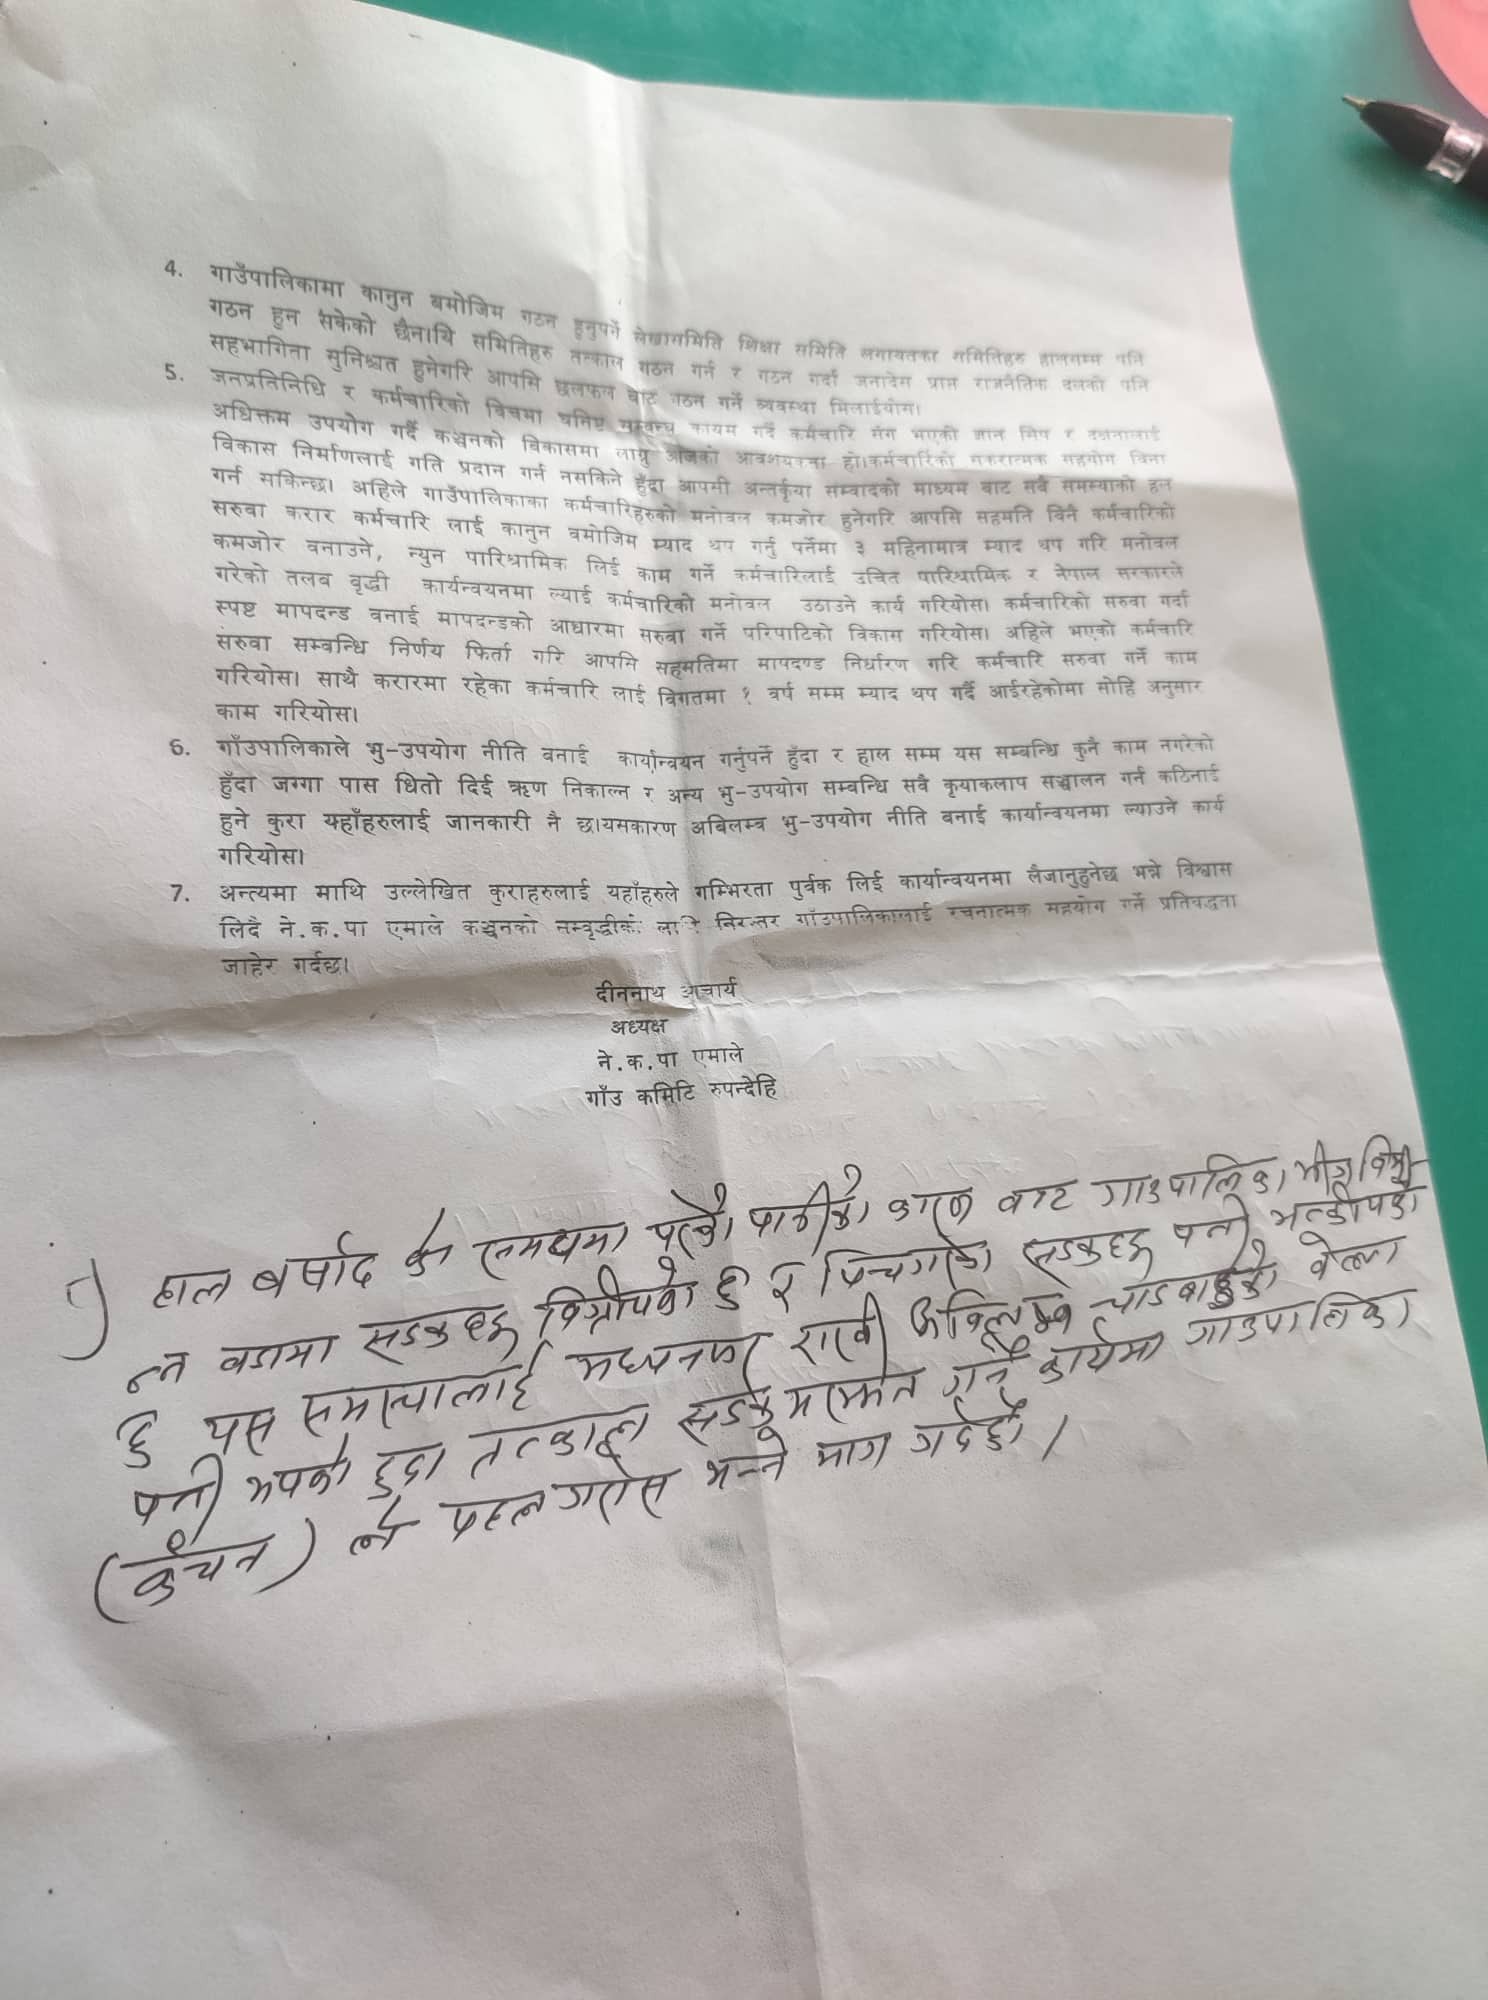 4. गाउँपालिकामा कानुन बमोजिम गठन हुनुपर्ने लेखासमिति शिक्षा समिति लगायतका समितिहरु हालसम्म पनि
गठन हुन सकेको छैन।यि समितिहरु तत्काल गठन गर्न र गठन गर्दा जनादेस प्राप्त राजनैतिक दलको पनि
सहभागिता सुनिश्चत हुनेगरि आपसि छलफल बाट गठन गर्ने व्यवस्था मिलाईयोस।
5. जनप्रतिनिधि र कर्मचारिको विचमा घनिष्ट सम्बन्ध कायम गर्दै कर्मचारि संग भएको ज्ञान सिप र दक्षतालाई
अधिक्तम उपयोग गर्दै कञ्चनको विकासमा लाग्नु आजको आवशयकता हो।कर्मचारिको सकारात्मक सहयोग विना
विकास निर्माणलाई गति प्रदान गर्न नसकिने हुँदा आपसी अन्तर्कृया सम्वादको माध्यम बाट सबै समस्याको हल
गर्न सकिन्छ। अहिले गाउँपालिकाका कर्मचारिहरुको मनोवल कमजोर हुनेगरि आपसि सहमति विनै कर्मचारिको
सरुवा करार कर्मचारि लाई कानुन बमोजिम म्याद थप गर्नु पर्नेमा ३ महिनामात्र म्याद थप गरि मनोवल
कमजोर वनाउने, न्युन पारिश्रामिक लिई काम गर्ने कर्मचारिलाई उचित पारिश्रामिक र नेपाल सरकारले
गरेको तलव वृद्धी कार्यन्वयनमा ल्याई कर्मचारिको मनोवल उठाउने कार्य गरियोस। कर्मचारिको सरुवा गर्दा
स्पष्ट मापदन्ड वनाई मापदन्डको आधारमा सरुवा गर्ने परिपाटिको विकास गरियोस। अहिले भएको कर्मचारि
सरुवा सम्बन्धि निर्णय फिर्ता गरि आपसि सहमतिमा मापदण्ड निर्धारण गरि कर्मचारि सरुवा गर्ने काम
गरियोस। साथै करारमा रहेका कर्मचारि लाई विगतमा १ वर्ष सम्म म्याद थप गर्दै आईरहेकोमा सोहि अनुसार
काम गरियोस।
6. गाँउपालिकाले भु-उपयोग नीति बनाई कार्यान्वयन गर्नुपर्ने हुँदा र हाल सम्म यस सम्बन्धि कुनै काम नगरेको
हुँदा जग्गा पास धितो दिई ऋण निकाल्न र अन्य भु-उपयोग सम्बन्धि सवै कृयाकलाप सञ्चालन गर्न कठिनाई
हुने कुरा यहाँहरुलाई जानकारी नै छ।यसकारण अबिलम्ब भु-उपयोग नीति बनाई कार्यान्वयनमा ल्याउने कार्य
गरियोस।
7. अन्त्यमा माथि उल्लेखित कुराहरुलाई यहाँहरुले गम्भिरता पुर्वक लिई कार्यान्वयनमा लैजानुहुनेछ भन्ने विश्वास
लिदै ने.क.पा एमाले कञ्चनको सम्वृद्धीको लागि निरन्तर गाँउपालिकालाई रचनात्मक सहयोग गर्ने प्रतिवद्धता
जाहेर गर्दछ।
दीननाथ आचार्य
अध्यक्ष
ने.क.पा एमाले
गाँउ कमिटि रुपन्देहि
हाल बर्षाद को समयमा परेको पानीको कारण बाट गाउपालिका भीत्र विभी
न्न वडामा सडकहरु विग्रीएको छ र पिचगरेका सडकहरु पनी भत्कीएको
छ यस समस्यालाई मध्यनजर राखी अविलम्ब चाडबाडको वेला
पनी भएको हुदा तत्काल सडक मरम्मत गर्ने कार्यमा गाउपालिका
(कंचन) ले पहलगरोस भन्ने माग गर्दछौ।